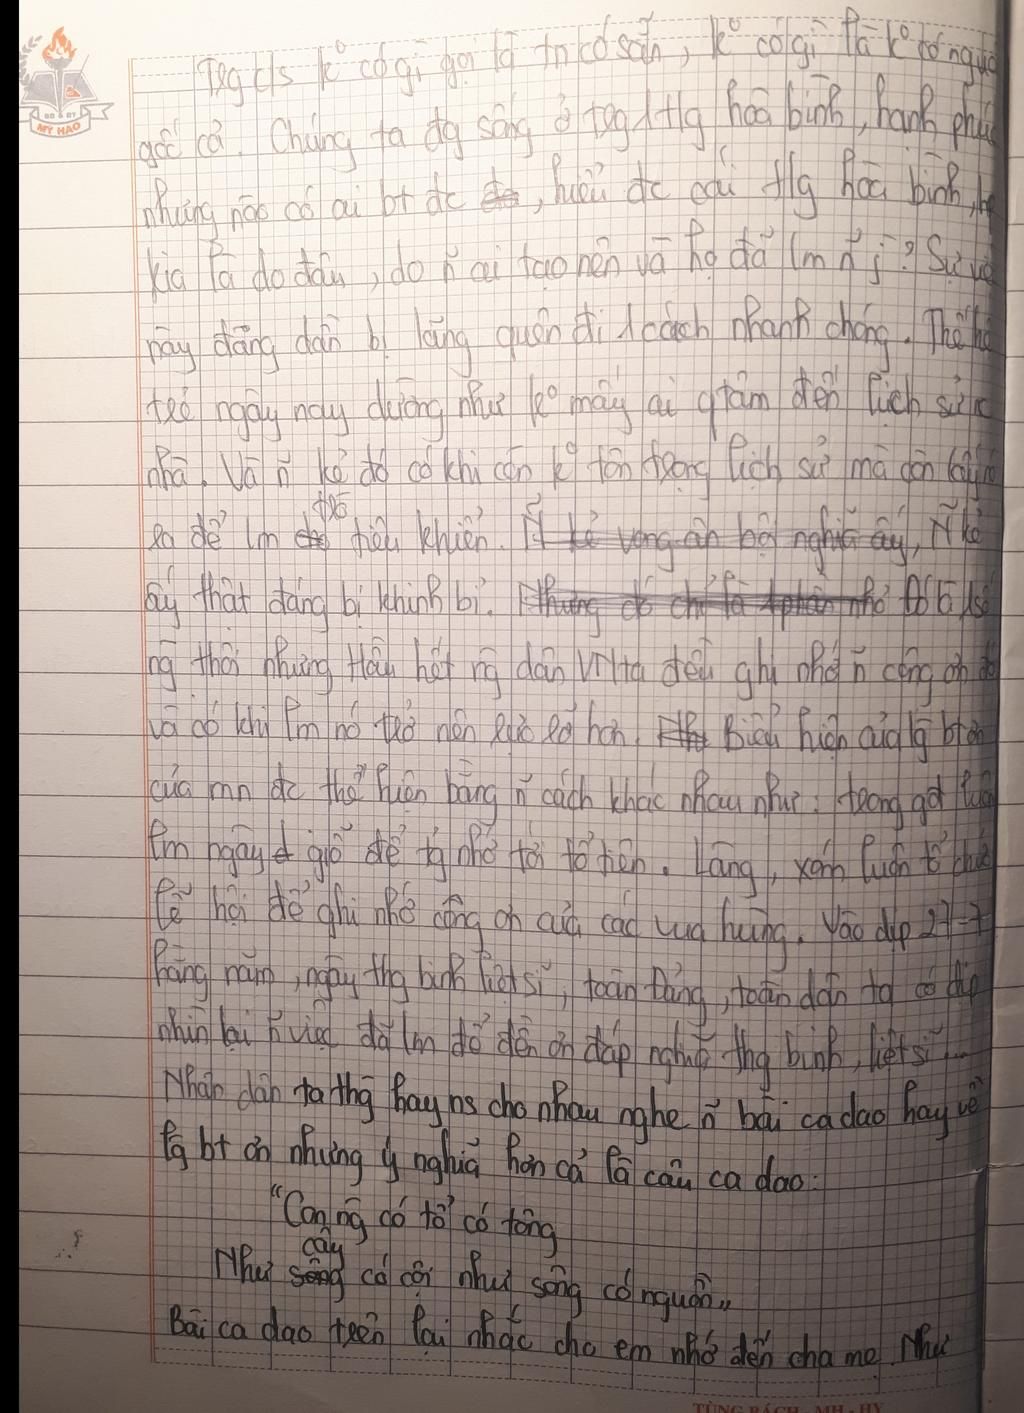 BD & ĐT
MỸ HÀO
Trg c/s k° có gì gọi là tn có sẵn, k° có gì là k° có nguồ
gốc cả. Chúng ta đg sống ở trg 1 tlg hoà bình, hạnh phúc
nhưng nào có ai bt đc, hiểu đc cái tlg hòa bình, hp
kia là do đâu, do ~n ai tạo nên và họ đã lm ~n j? Sự vc
này đang dần bị lãng quên đi 1 cách nhanh chóng. Thế hệ
trẻ ngày nay dường như k° mấy ai qtâm đến lịch sử nc
nhà. Và ~n kẻ đó có khi còn k° tôn trọng lịch sử mà còn lấy
ra để lm trò tiêu khiển. ~N kẻ vong ân bội nghĩa ấy, ~N kẻ
ấy thật đáng bị khinh bỉ. Nhưng đó chỉ là 1 phần nhỏ Đó là 1 số
ng thôi nhưng Hầu hết ng dân VN ta đều ghi nhớ ~n công ơn đó
và có khi lm nó trở nên rực rỡ hơn. Biểu hiện của lg bt ơn
của mn đc thể hiện bằng ~n cách khác nhau như: trong gđ luôn
lm ngày giỗ để tg nhớ tới tổ tiên. Làng, xóm luôn tổ chức
lễ hội để ghi nhớ công ơn của các vua hùng. Vào dịp 27-7
hằng năm, ngày thg binh liệt sĩ, toàn Đảng, toàn dân ta có dịp
nhìn lại ~n việc đã lm để đền ơn đáp nghĩa thg binh, liệt sĩ...
Nhân dân ta thg hay ns cho nhau nghe ~n bài ca dao hay về
lg bt ơn nhưng ý nghĩa hơn cả là câu ca dao:
"Con ng có tổ có tông
Như cây có cội như sông có nguồn"
Bài ca dao trên lại nhắc cho em nhớ đến cha mẹ. Như
TÙNG BÁCH - MH - HY